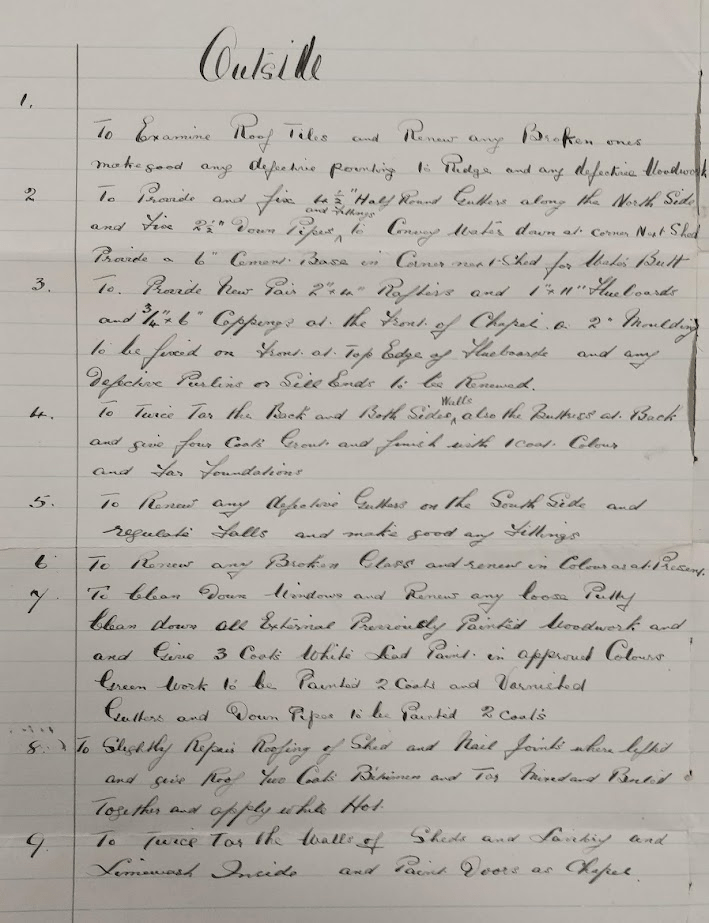 Outside
1.
To Examine Roof Tiles and Renew any Broken ones
make good any defective pointing to Ridge and any defective Woodwork
2 To Provide and fix 4 1/2" Half Round Gutters along the North Side
and Fixe 2 1/2" Down Pipes and fittings to Convey Water down at corner Next Shed
Provide a 6" Cement Base in Corner next Shed for Water Butt
3. To. Provide New Pair 2" x 4" Rafters and 1" x 11" Flueboards
and 3/4" x 6" Coppings at the Front of Chapel a 2" Moulding
to be fixed on Front at Top Edge of Flueboards and any
Defective Purlins or Sill Ends to be Renewed.
4. To Twice Tar the Back and Both Sides Walls also the Buttress at Back
and give four Coats Grout and finish with 1 Coat Colour
and Tar Foundations
5. To Renew any defective Gutters on the South Side and
regulate Falls and make good any Fittings
6 To Renew any Broken Glass and renew in Colour as at Present.
7. To Clean Down Windows and Renew any loose Putty
Clean down all External Previously Painted Woodwork and
and Give 3 Coats White Lead Paint in approved Colours
Green Work to be Painted 2 Coats and Varnished
Gutters and Down Pipes to be Painted 2 coats
8. To Slightly Repair Roofing of Shed and Nail Joints where lifted
and give Roof Two Coats Bitumen and Tar
Together and apply while Hot.
9. To Twice Tar the Walls of Sheds and and
Limewash Inside and Paint Doors as Chapel.